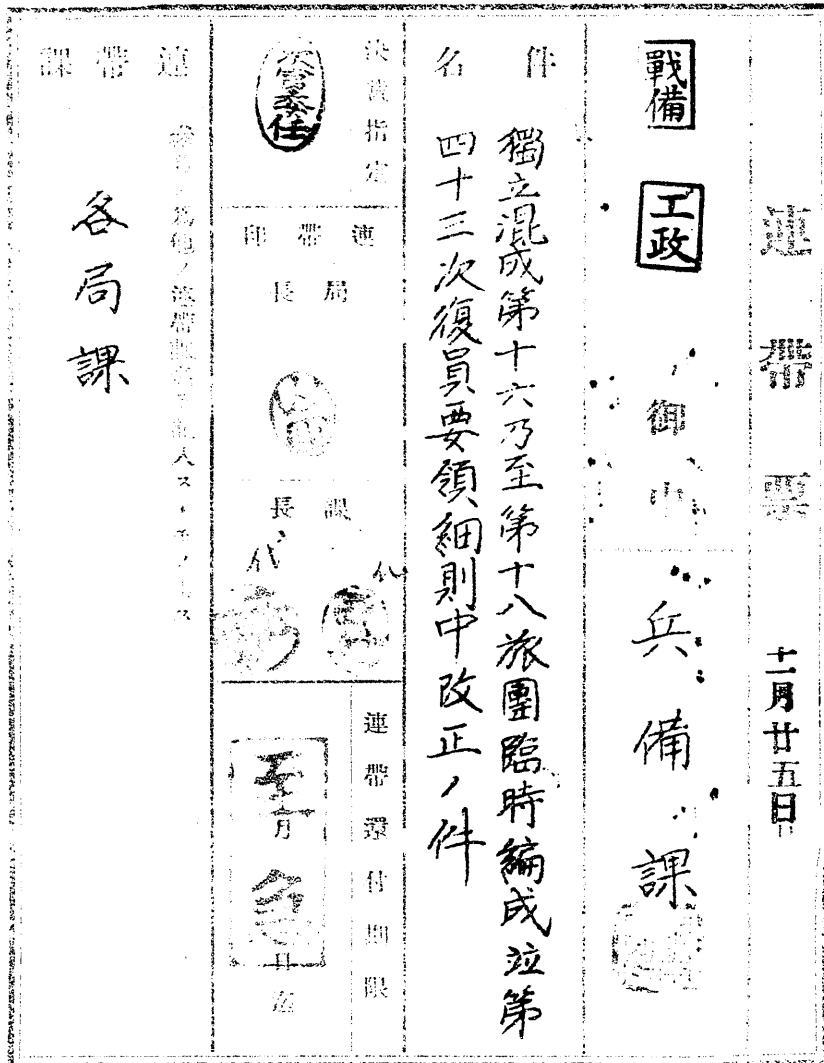 連帶票 十一月廿五日
戰備 工政 御中 兵備課
件名
獨立混成第十六乃至第十八旅團臨時編成竝第
四十三次復員要領細則中改正ノ件
決裁指定
次官委任
連帶印
局長
課長
代
代
連帶還付期限
至急
月 日迄
連帶課
各局課